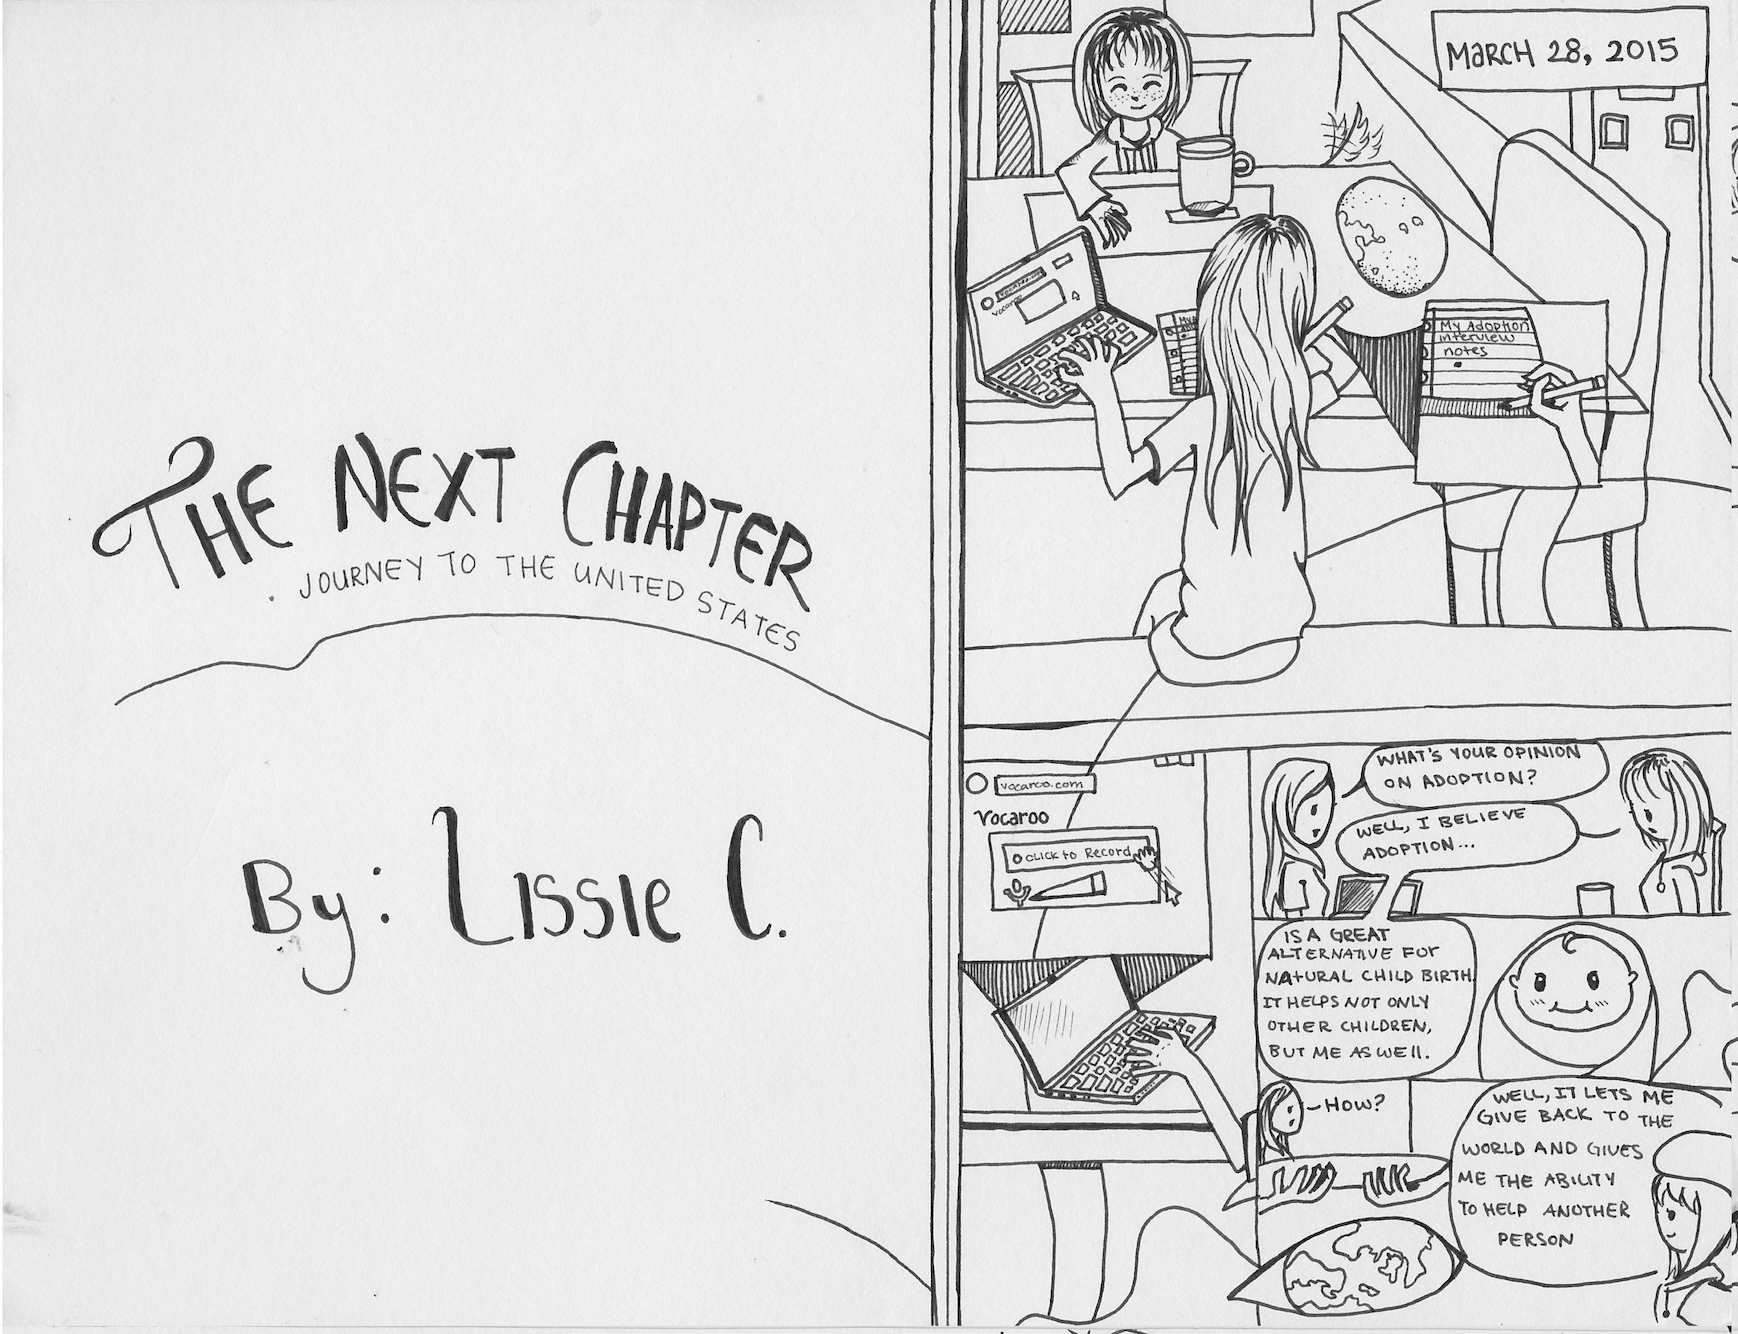 THE NEXT CHAPTER
JOURNEY TO THE UNITED STATES
By: LISSIE C.
MARCH 28, 2015
vocaroo
My Adoption
interview
notes
vocaroo.com
Vocaroo
CLICK to Record
WHAT'S YOUR OPINION
ON ADOPTION?
WELL, I BELIEVE
ADOPTION...
IS A GREAT
ALTERNATIVE FOR
NATURAL CHILD BIRTH
IT HELPS NOT ONLY
OTHER CHILDREN,
BUT ME AS WELL.
HOW?
WELL, IT LETS ME
GIVE BACK TO THE
WORLD AND GIVES
ME THE ABILITY
TO HELP ANOTHER
PERSON